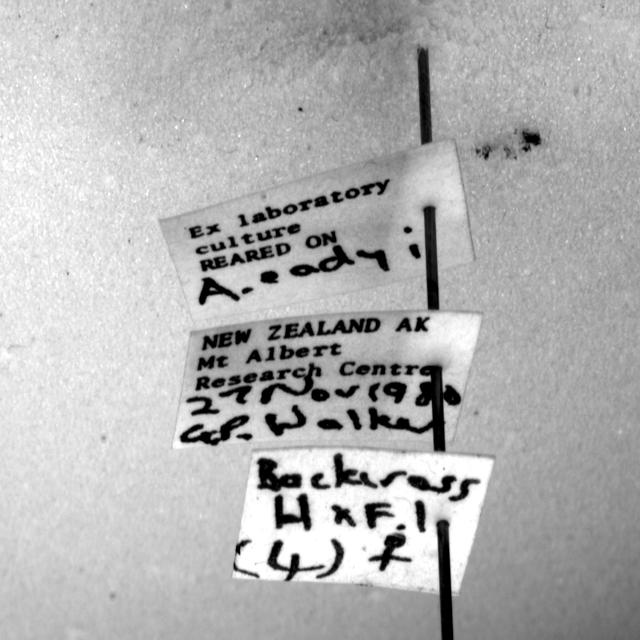 Ex laboratory
culture
REARED ON
A. eadyi
NEW ZEALAND AK
Mt Albert
Research Centre
27 Nov 1980
G.P. Walker
Backcross
H x F.1
(4) ♀